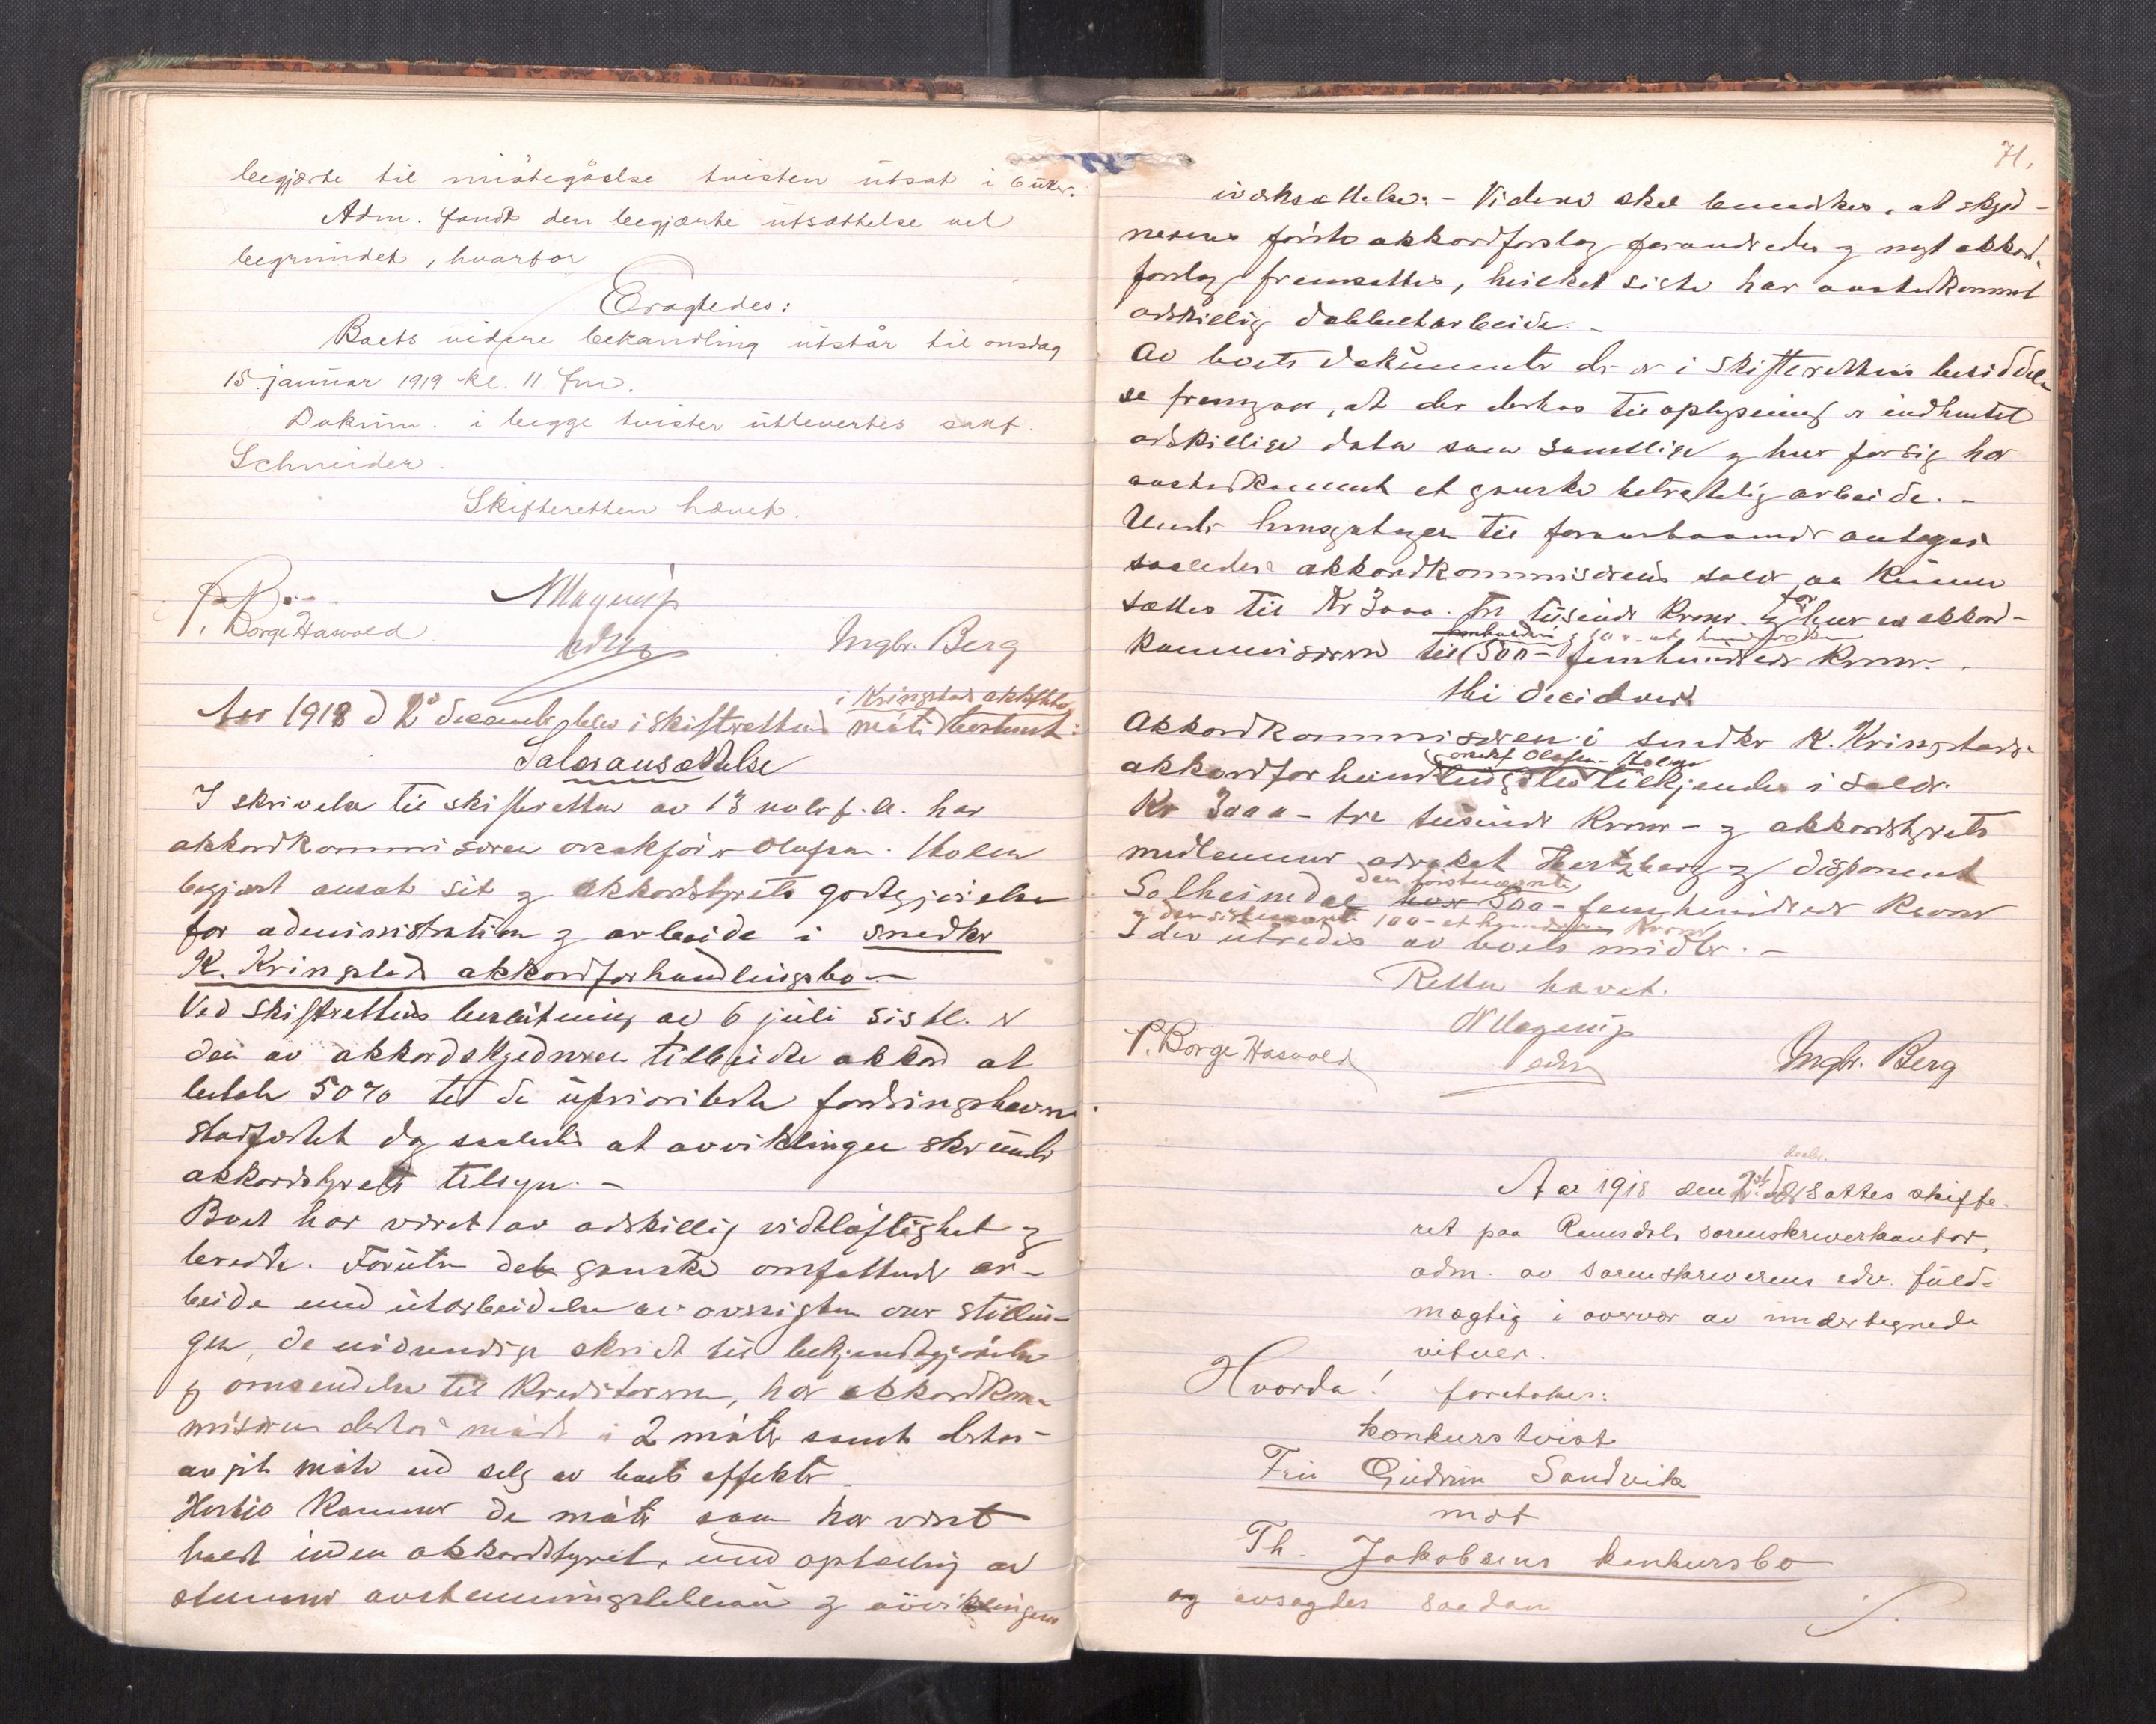 begjærte til imøtegåelse tvisten utsat i 6 uker.
Adm. fandt den begjærte utsættelse vel
begrundet, hvorfor
Eragtedes:
Boets videre behandling utstår til onsdag
15. januar 1919 kl. 11 fm.
Dokum. i begge tvister utlevertes sakf.
Schneider.
Skifteretten hævet.
P. Borge Hasvold
edv
Ingbr. Berg
Aar 1918 d 2 december blev i skifteretten
i Kringstads akk.fhbo
møte bestemt:
Salæransættelse
I skrivelse til skifteretten av 13 novbr f. a. har
akkordkommissæren overrettssakfører Olafsen Holm
begjært ansat sit og akkordstyrets godtgjørelse
for administration og arbeide i snedker
K. Kringstads akkordforhandlingsbo. -
Ved skifterettens beslutning av 6 juli sistl. er
den av akkordskyldneren tilbudte akkord at
betale 50% til de uprioriterte fordringshavere
stadfæstet dog saaledes at avviklingen sker under
akkordstyrets tilsyn. -
Boet har været av adskillig vidtløftighet og
bredde. Foruten det ganske omfattende ar-
beide med utarbeidelse av oversigten over stillin-
gen, de nødvendige skridt til bekjendtgjørelse
og omsendelse til kreditorerne, har akkordkom-
missæren derhos møtt i 2 møter samt derhos
avgit møte ved salg av boets effekter.
Hertil kommer de møter som har været
holdt inden akkordstyret, med optælling av
stemmer avstemningstilbud og avviklingens
71.
iverksættelse. - Videre skal bemerkes, at skyld-
nerens første akkordforslag forandredes og nyt akkord-
forslag fremsattes, hvilket siste har avstedkommet
adskillig dobbeltarbeide. -
Av boets dokumenter der er i skifterettens besiddel-
se fremgaar, at der derhos til oplysning er indhentet
adskillige data som samtlige og hver for sig har
avstedkommet et ganske betragtelig arbeide. -
Under hensyntagen til foranstaaende antages
saaledes akkordkommissærens salær at kunne
sættes til Kr 3000. tre tusinde kroner og for hver av akkord-
kommissærene til 500 - femhundrede kroner.
thi decideres
Akkordkommissæren i snedker K. Kringstads
orsakf Olafsen-Holm
akkordforhandlingsbo tilkjendes i salær
Kr 3000 - tre tusinde kroner - og akkordstyrets
medlemmer advokat Hertzberg og disponent
den førstnævnte
Solheimdal hver 500 - femhundrede kroner
og den sistnævnte 100 - et hundrede kroner
I der utredes av boets midler. -
Retten hævet.
P. Borge Hasvold
edv
Ingbr. Berg
decbr.
Aar 1918 den 2. sattes skifte-
ret paa Romsdals sorenskriverkontor,
adm. av sorenskriverens edv. fuld-
mægtig i overvær av undertegnede
vitner.
Hvorda! foretokes:
konkurstvist
Fru Gudrun Sandvik
mot
Th. Jakobsens konkursbo
og avsagdes saadan